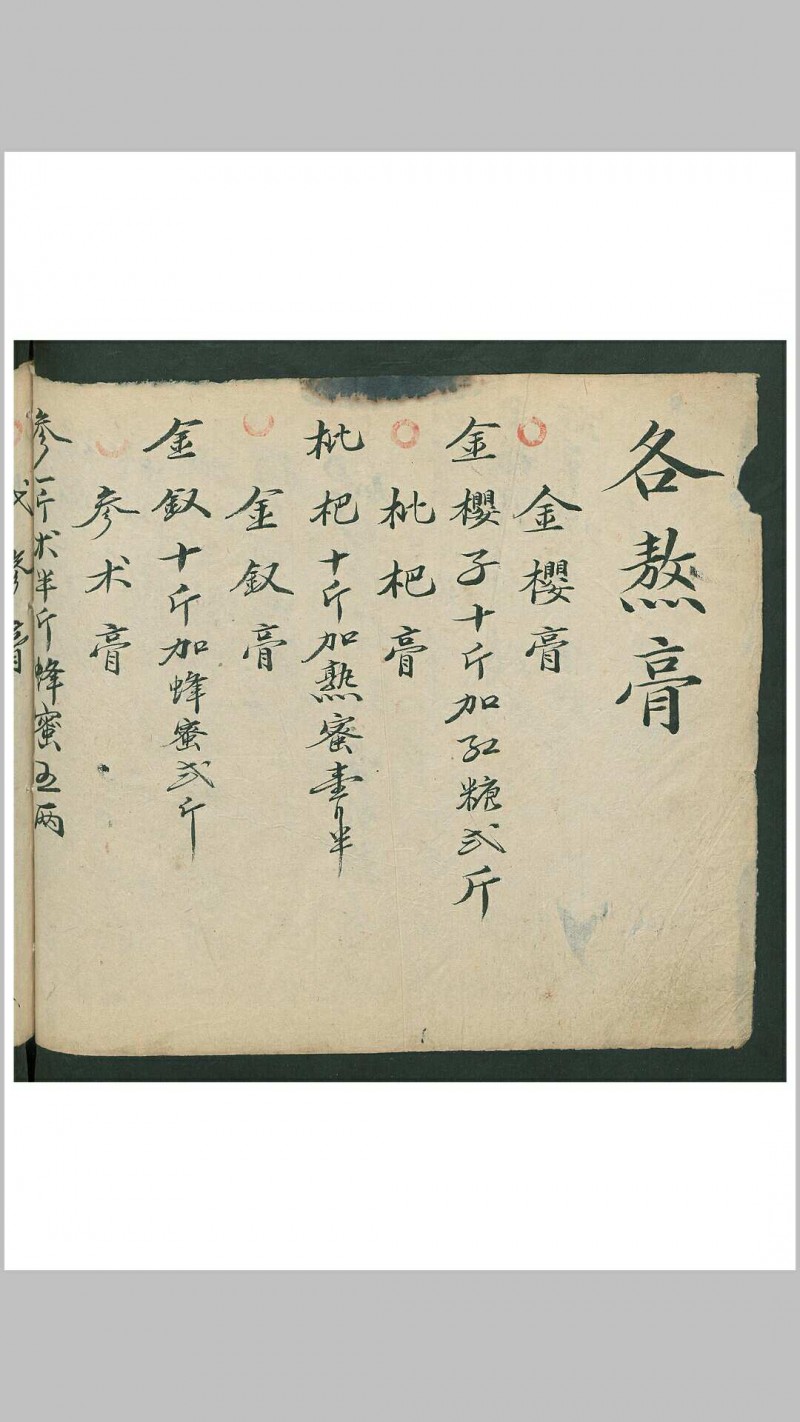 各熬膏
金櫻膏
金櫻子十斤加紅糖弍斤
枇杷膏
枇杷十斤加熟蜜壹斤半
金釵膏
金釵十斤加蜂蜜弍斤
參术膏
參一斤术半斤蜂蜜五兩
膏